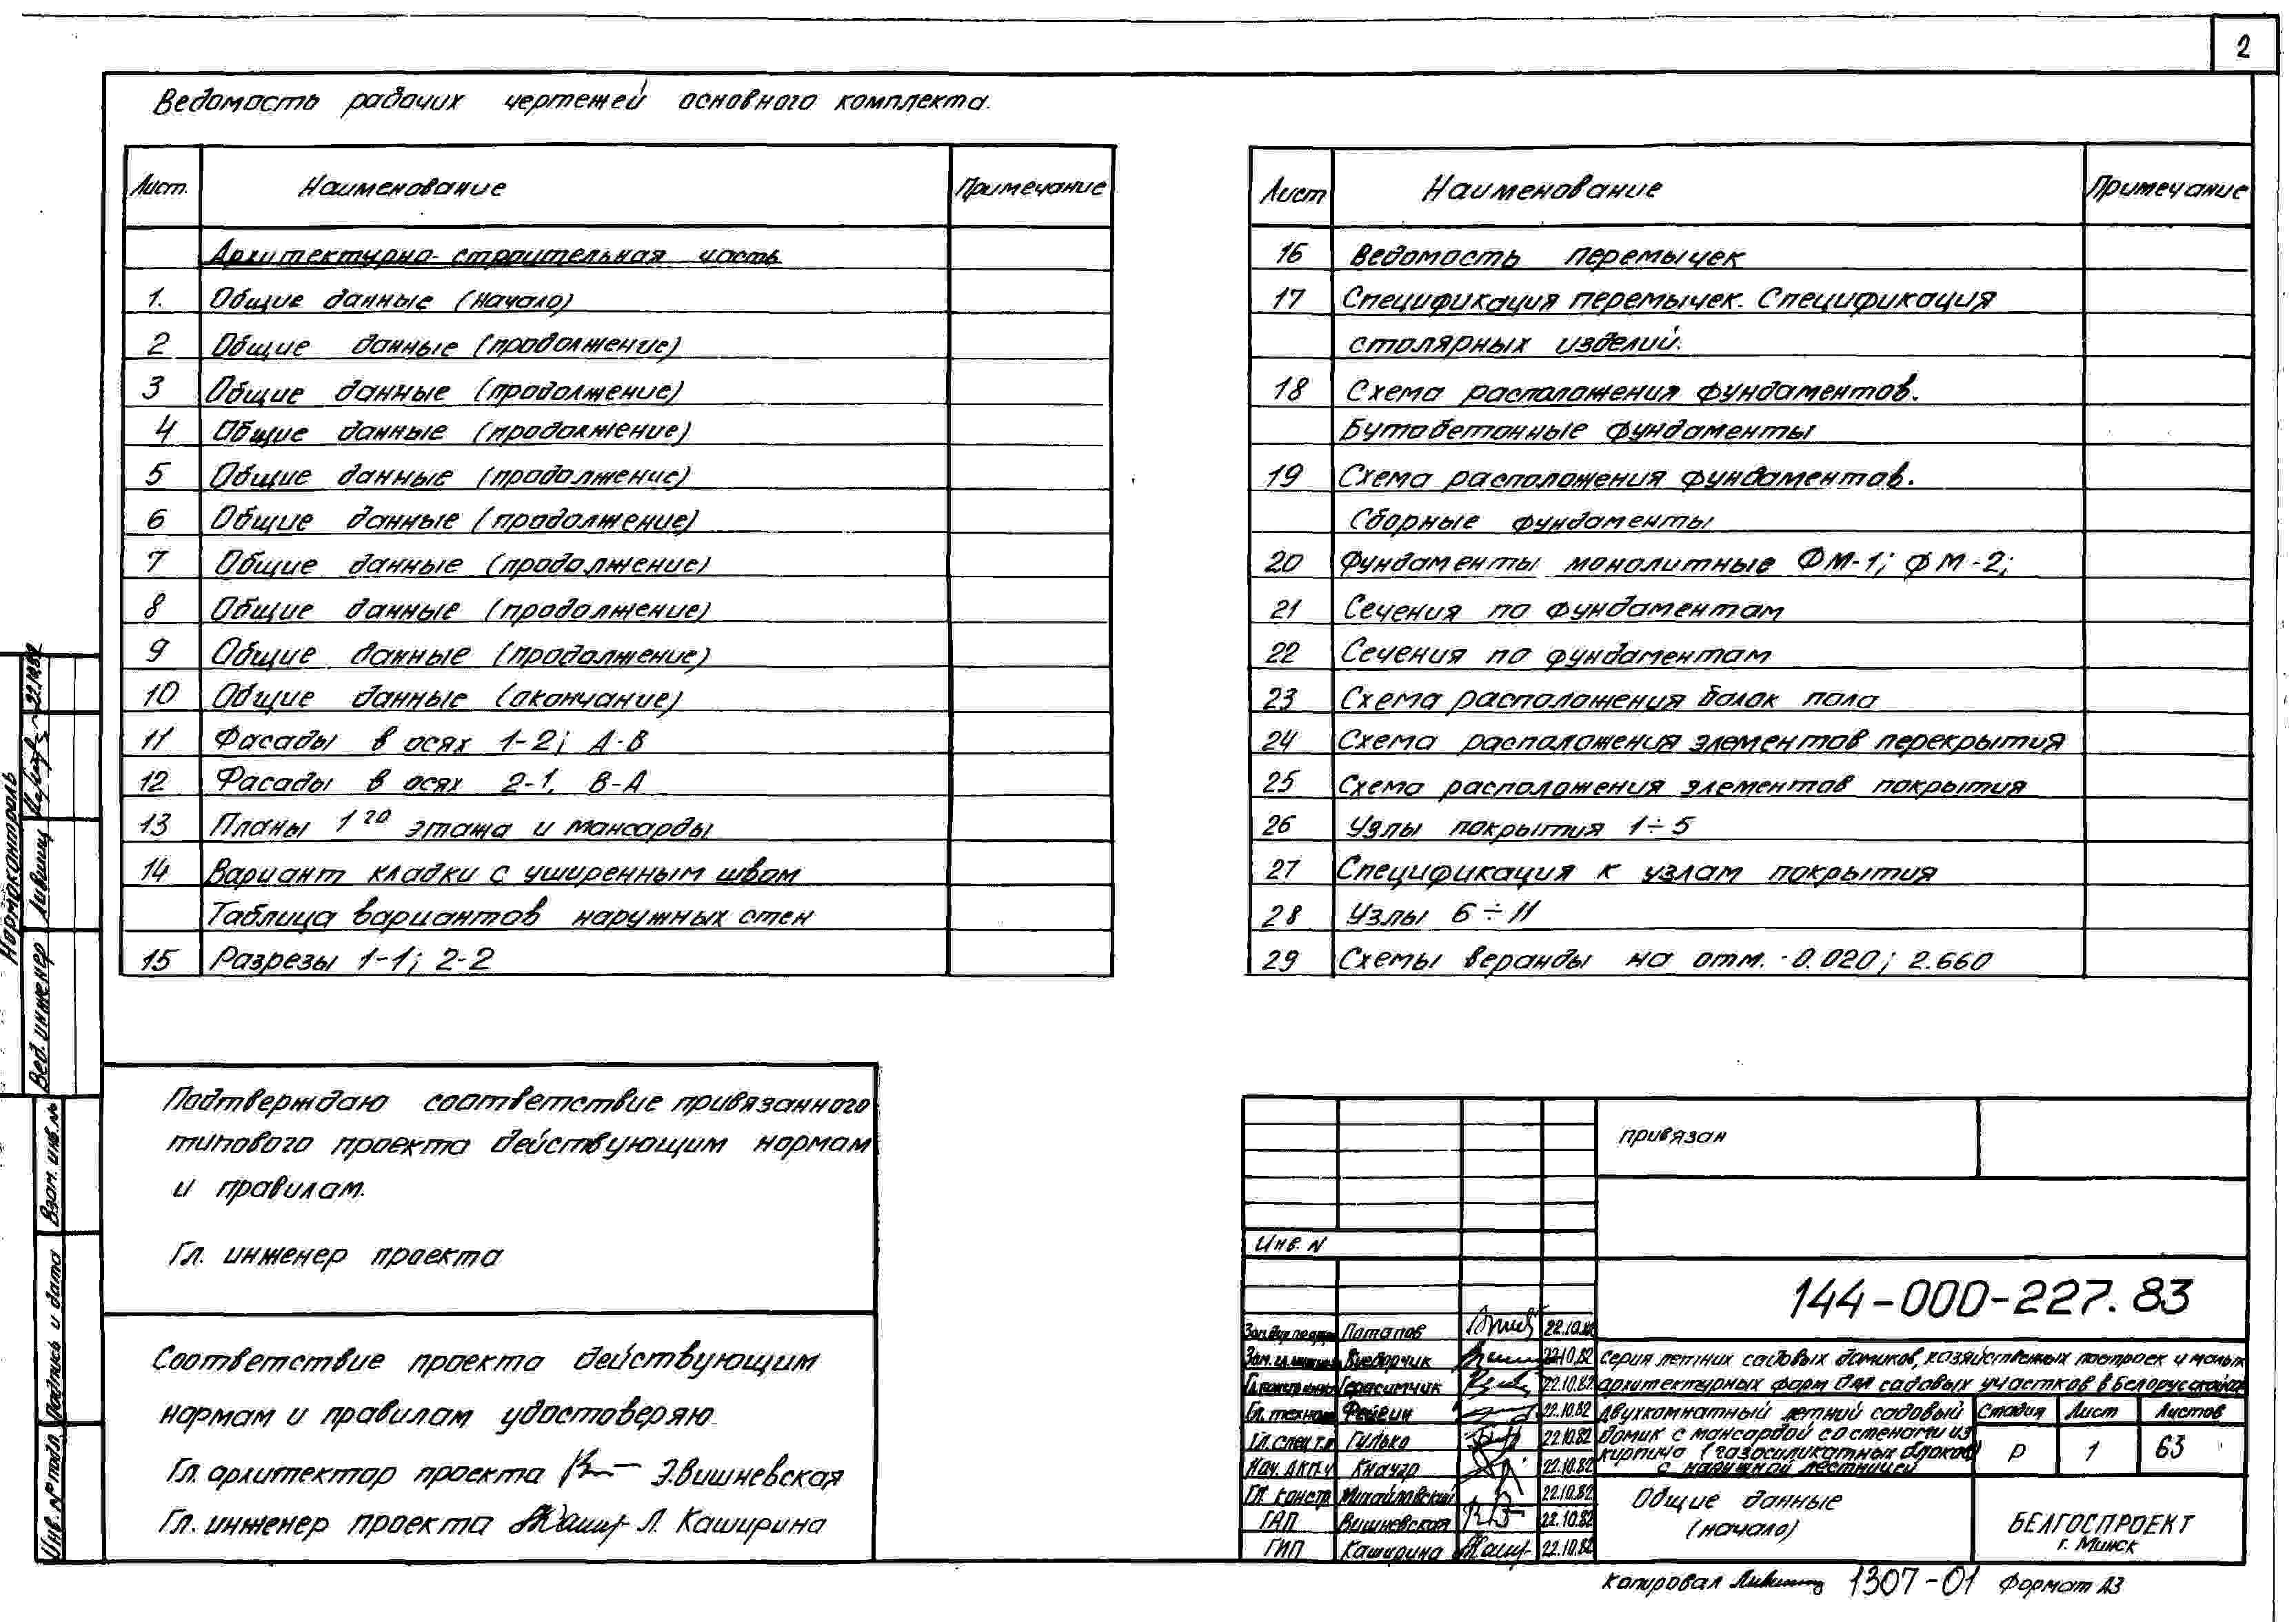 2
Ведомость рабочих чертежей основного комплекта.
Лист. Наименование Примечание
Архитектурно-строительная часть
1. Общие данные (начало)
2 Общие данные (продолжение)
3 Общие данные (продолжение)
4 Общие данные (продолжение)
5 Общие данные (продолжение)
6 Общие данные (продолжение)
7 Общие данные (продолжение)
8 Общие данные (продолжение)
9 Общие данные (продолжение)
10 Общие данные (окончание)
11 Фасады в осях 1-2; А-В
12 Фасады в осях 2-1, В-А
13 Планы 1го этажа и мансарды
14 Вариант кладки с уширенным швом
Таблица вариантов наружных стен
15 Разрезы 1-1; 2-2
Лист Наименование Примечание
16 Ведомость перемычек
17 Спецификация перемычек. Спецификация
столярных изделий.
18 Схема расположения фундаментов.
Бутобетонные фундаменты
19 Схема расположения фундаментов.
Сборные фундаменты
20 Фундаменты монолитные ФМ-1; ФМ-2;
21 Сечения по фундаментам
22 Сечения по фундаментам
23 Схема расположения балок пола
24 Схема расположения элементов перекрытия
25 Схема расположения элементов покрытия
26 Узлы покрытия 1÷5
27 Спецификация к узлам покрытия
28 Узлы 6÷11
29 Схемы веранды на отм. -0.020; 2.660
Нормоконтроль
Вед. инженер Лившиц 22.10.82
Взам. инв. №
Подпись и дата
Инв. № подл.
Подтверждаю соответствие привязанного
типового проекта действующим нормам
и правилам.
Гл. инженер проекта
Соответствие проекта действующим
нормам и правилам удостоверяю
Гл. архитектор проекта Э. Вишневская
Гл. инженер проекта Л. Каширина
привязан
Инв. N
144-000-227.83
Потапов 22.10.82
22.10.82
Герасимчик 22.10.82
Фейгин 22.10.82
Гл. спец. Гулько 22.10.82
Кнауэр 22.10.82
Гл. констр. Михайловский 22.10.82
ГАП Вишневская 22.10.82
ГИП Каширина 22.10.82
Серия летних садовых домиков, хозяйственных построек и малых
архитектурных форм для садовых участков в Белорусской
Двухкомнатный летний садовый
домик с мансардой со стенами из
кирпича (газосиликатных блоков)
с наружной лестницей
Стадия Лист Листов
Р 1 63
Общие данные
(начало)
БЕЛГОСПРОЕКТ
г. Минск
Копировал 1307-01 Формат А3